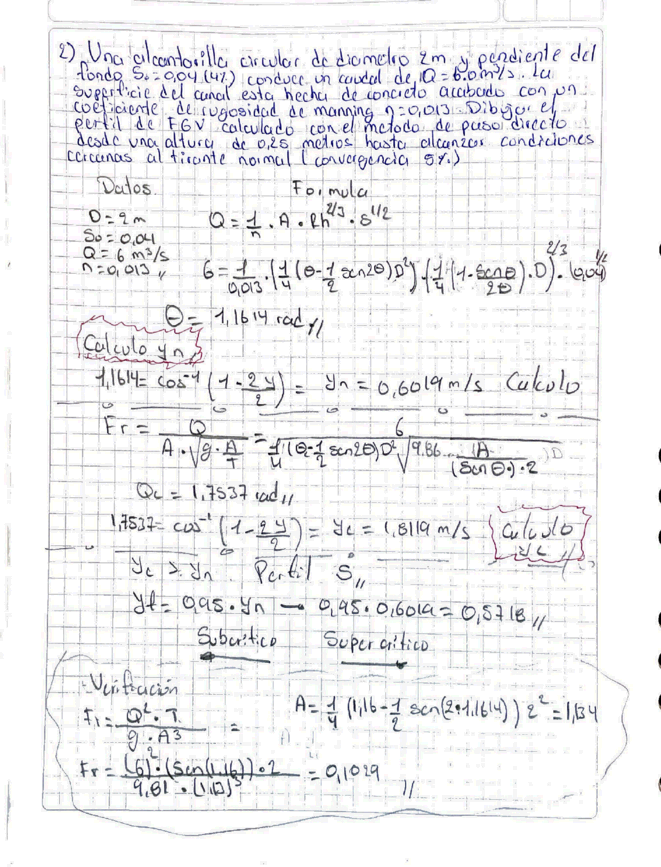 2) Una alcantarilla circular de diametro 2m y pendiente del
fondo S₀=0,04 (4%) conduce un caudal de Q=6.0m³/s. La
superficie del canal esta hecha de concreto acabado con un
coeficiente de rugosidad de manning η=0,013. Dibujar el
perfil de FGV calculado con el metodo de paso directo
desde una altura de 0,25 metros hasta alcanzar condiciones
cercanas al tirante normal (convergencia 5%.)
Datos. Formula
D=2m Q=1/n · A · Rh^2/3 · S^1/2
S₀=0,04
Q=6 m³/s
n=0,013 ,,
6=1/0,013 · (1/4 (θ-1/2 sen2θ)D²) · (1/4 (1-senθ/2θ) · D)^2/3 · (0,04)^1/2
θ= 1,1614 rad,,
Calculo yn,,
1,1614= cos⁻¹ (1-2y/2) = yn=0,6019 m/s Calculo
Fr= Q/A·√g·A/T = 6/1/4 (θ-1/2 sen2θ)D² √9.86 .. A/(Senθ·)·2 D
Qc = 1,7537 rad,,
1,7537= cos⁻¹ (1-2y/2) = yc = 1,8119 m/s Calculo
yc,,
yc > yn Perfil S,,
yf= 0,95·yn → 0,95·0,6019=0,5718,,
Subcritico Supercritico
Verificación
Fr= Q²·T/g·A³ = A=1/4 (1,16-1/2 sen(2·1,1614)) 2²=1,134
Fr= (6)²·(Sen(1,16))·2/9,81·(1,13)³ =0,1029
,,